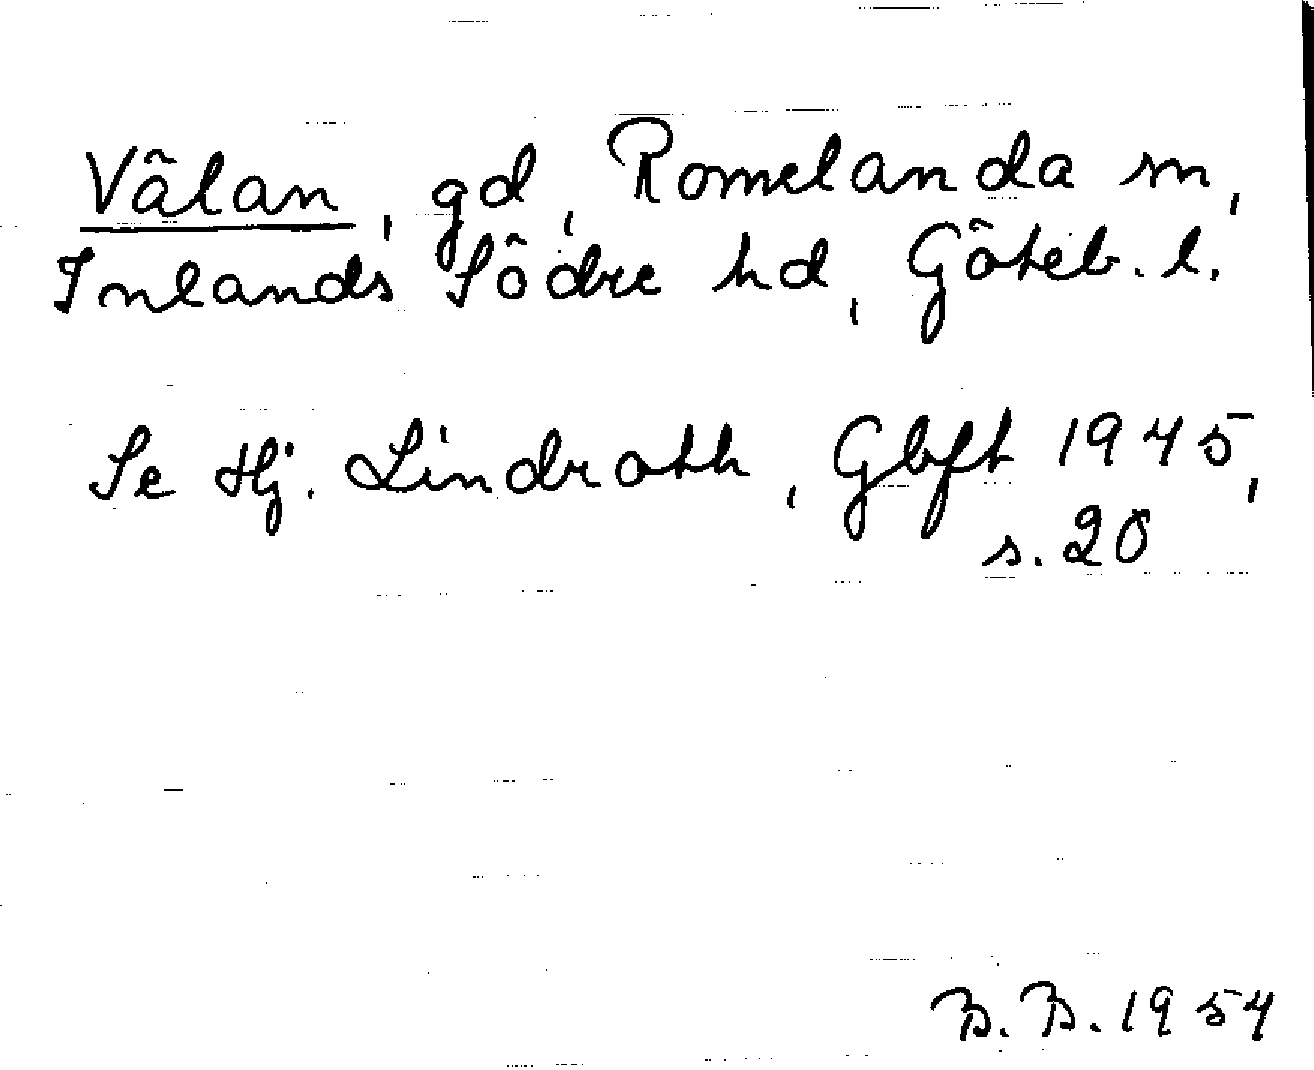 Välan, gd, Romelanda sn,
Inlands Södre hd, Göteb. l.
Se Hj. Lindroth, Gbft 1945,
s. 20
B. B. 1954